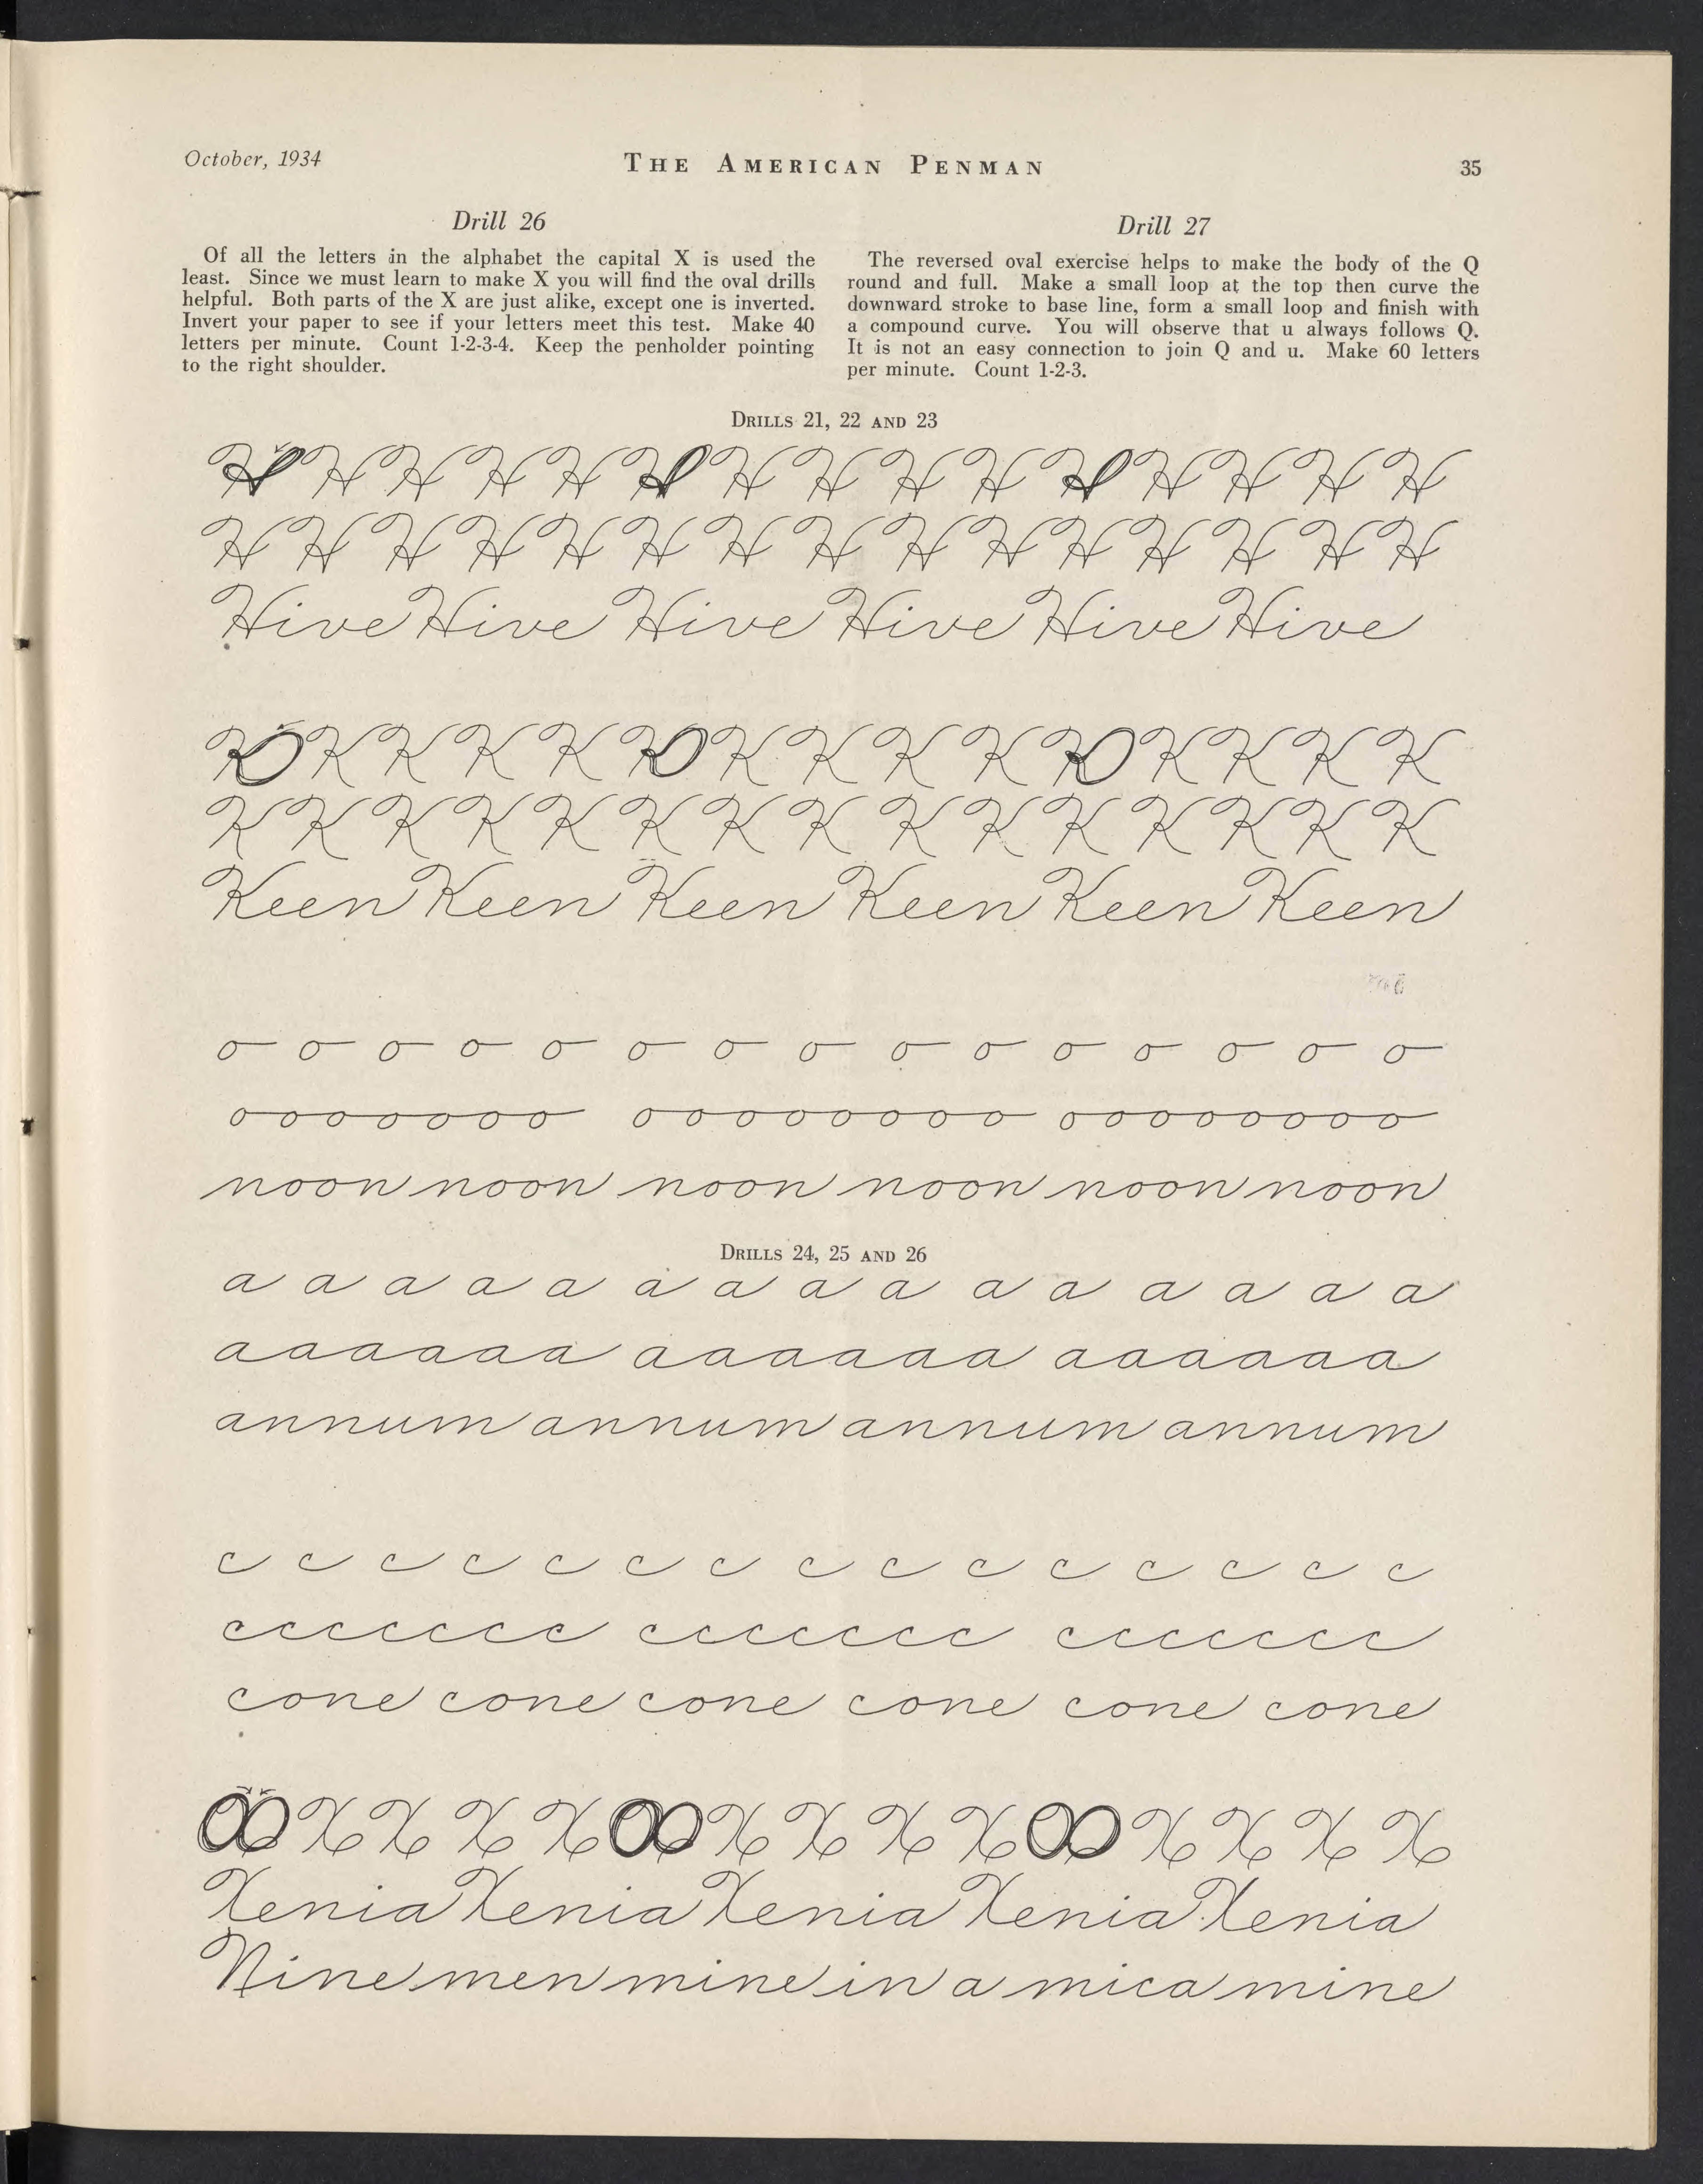 October, 1934
THE AMERICAN PENMAN
35
Drill 26
Of all the letters in the alphabet the capital X is used the
least. Since we must learn to make X you will find the oval drills
helpful. Both parts of the X are just alike, except one is inverted.
Invert your paper to see if your letters meet this test. Make 40
letters per minute. Count 1-2-3-4. Keep the penholder pointing
to the right shoulder.
Drill 27
The reversed oval exercise helps to make the body of the Q
round and full. Make a small loop at the top then curve the
downward stroke to base line, form a small loop and finish with
a compound curve. You will observe that u always follows Q.
It is not an easy connection to join Q and u. Make 60 letters
per minute. Count 1-2-3.
DRILLS 21, 22 AND 23
H H H H H H H H H H H H H H H
H H H H H H H H H H H H H H H
Hive Hive Hive Hive Hive Hive
K K K K K K K K K K K K K K K
K K K K K K K K K K K K K K K
Keen Keen Keen Keen Keen Keen
o o o o o o o o o o o o o o o
ooooooo oooooooo ooooooooo
noon noon noon noon noon noon
DRILLS 24, 25 AND 26
a a a a a a a a a a a a a a a
aaaaaa aaaaaa aaaaaa
annum annum annum annum
c c c c c c c c c c c c c c c
ccccccc ccccccc ccccccc
cone cone cone cone cone cone
X X X X X X X X X X X X
Xenia Xenia Xenia Xenia Xenia
Nine men mine in a mica mine